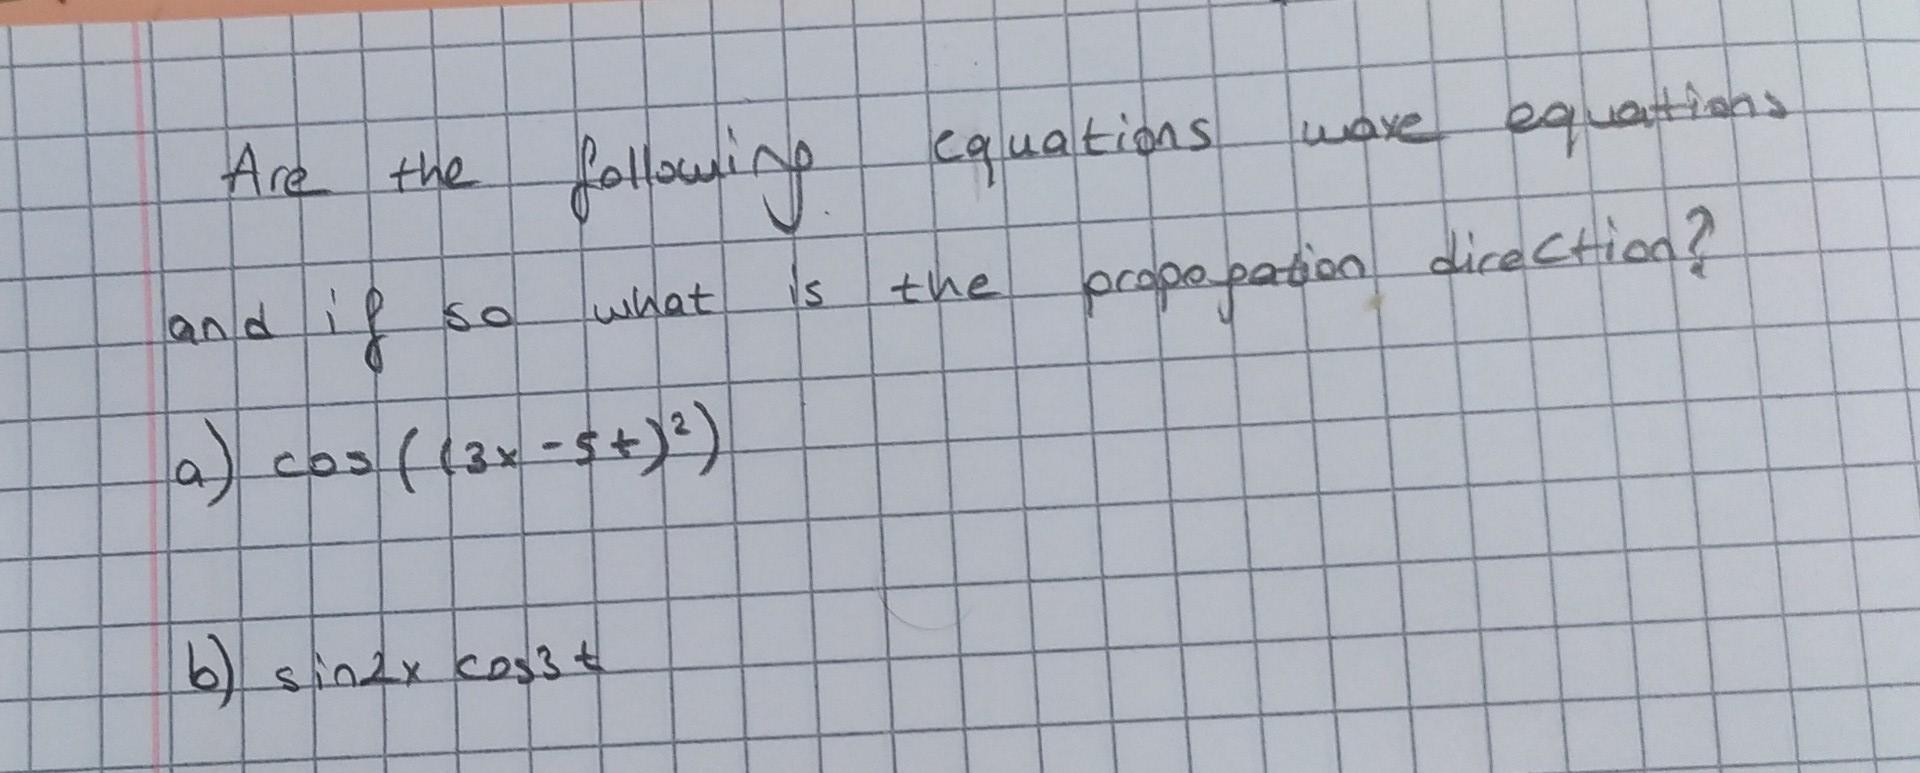 Are the following equations wave equations
and if so what is the propopation direction?
a) cos((3x-5t)²)
b) sin2x cos3t